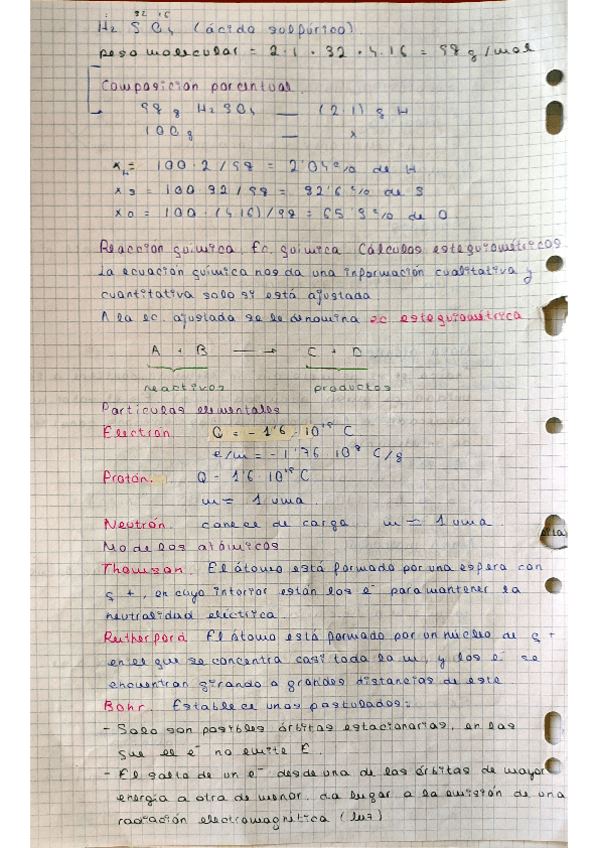 1 32 16
H₂ SO₄ (ácido sulfúrico)
peso molecular = 2·1 + 32 + 4·16 = 98 g/mol
Composición porcentual
98 g H₂SO₄ — (2·1) g H
100 g — x
x H = 100·2/98 = 2'04% de H
x S = 100·32/98 = 32'6% de S
x O = 100·(4·16)/98 = 65'3% de O
Reacción química. Ec. química. Cálculos estequiométricos
La ecuación química nos da una información cualitativa y
cuantitativa solo si está ajustada
A la ec. ajustada se le denomina ec estequiométrica
A + B → C + D
reactivos productos
Partículas elementales
Electrón Q = - 1'6 · 10⁻¹⁹ C
e/m = - 1'76 · 10⁸ C/g
Protón. Q = 1'6 · 10⁻¹⁹ C
m ≈ 1 uma.
Neutrón carece de carga m ≈ 1 uma
Modelos atómicos
Thomson El átomo está formado por una esfera con
q +, en cuyo interior están los e⁻ para mantener la
neutralidad eléctrica.
Rutherford El átomo está formado por un núcleo de q +
en el que se concentra casi toda la m, y los e⁻ se
encuentran girando a grandes distancias de este
Bohr. Establece unos postulados:
- Solo son posibles órbitas estacionarias, en las
que el e⁻ no emite E.
- El salto de un e⁻ desde una de las órbitas de mayor
energía a otra de menor, da lugar a la emisión de una
radiación electromagnética (luz)